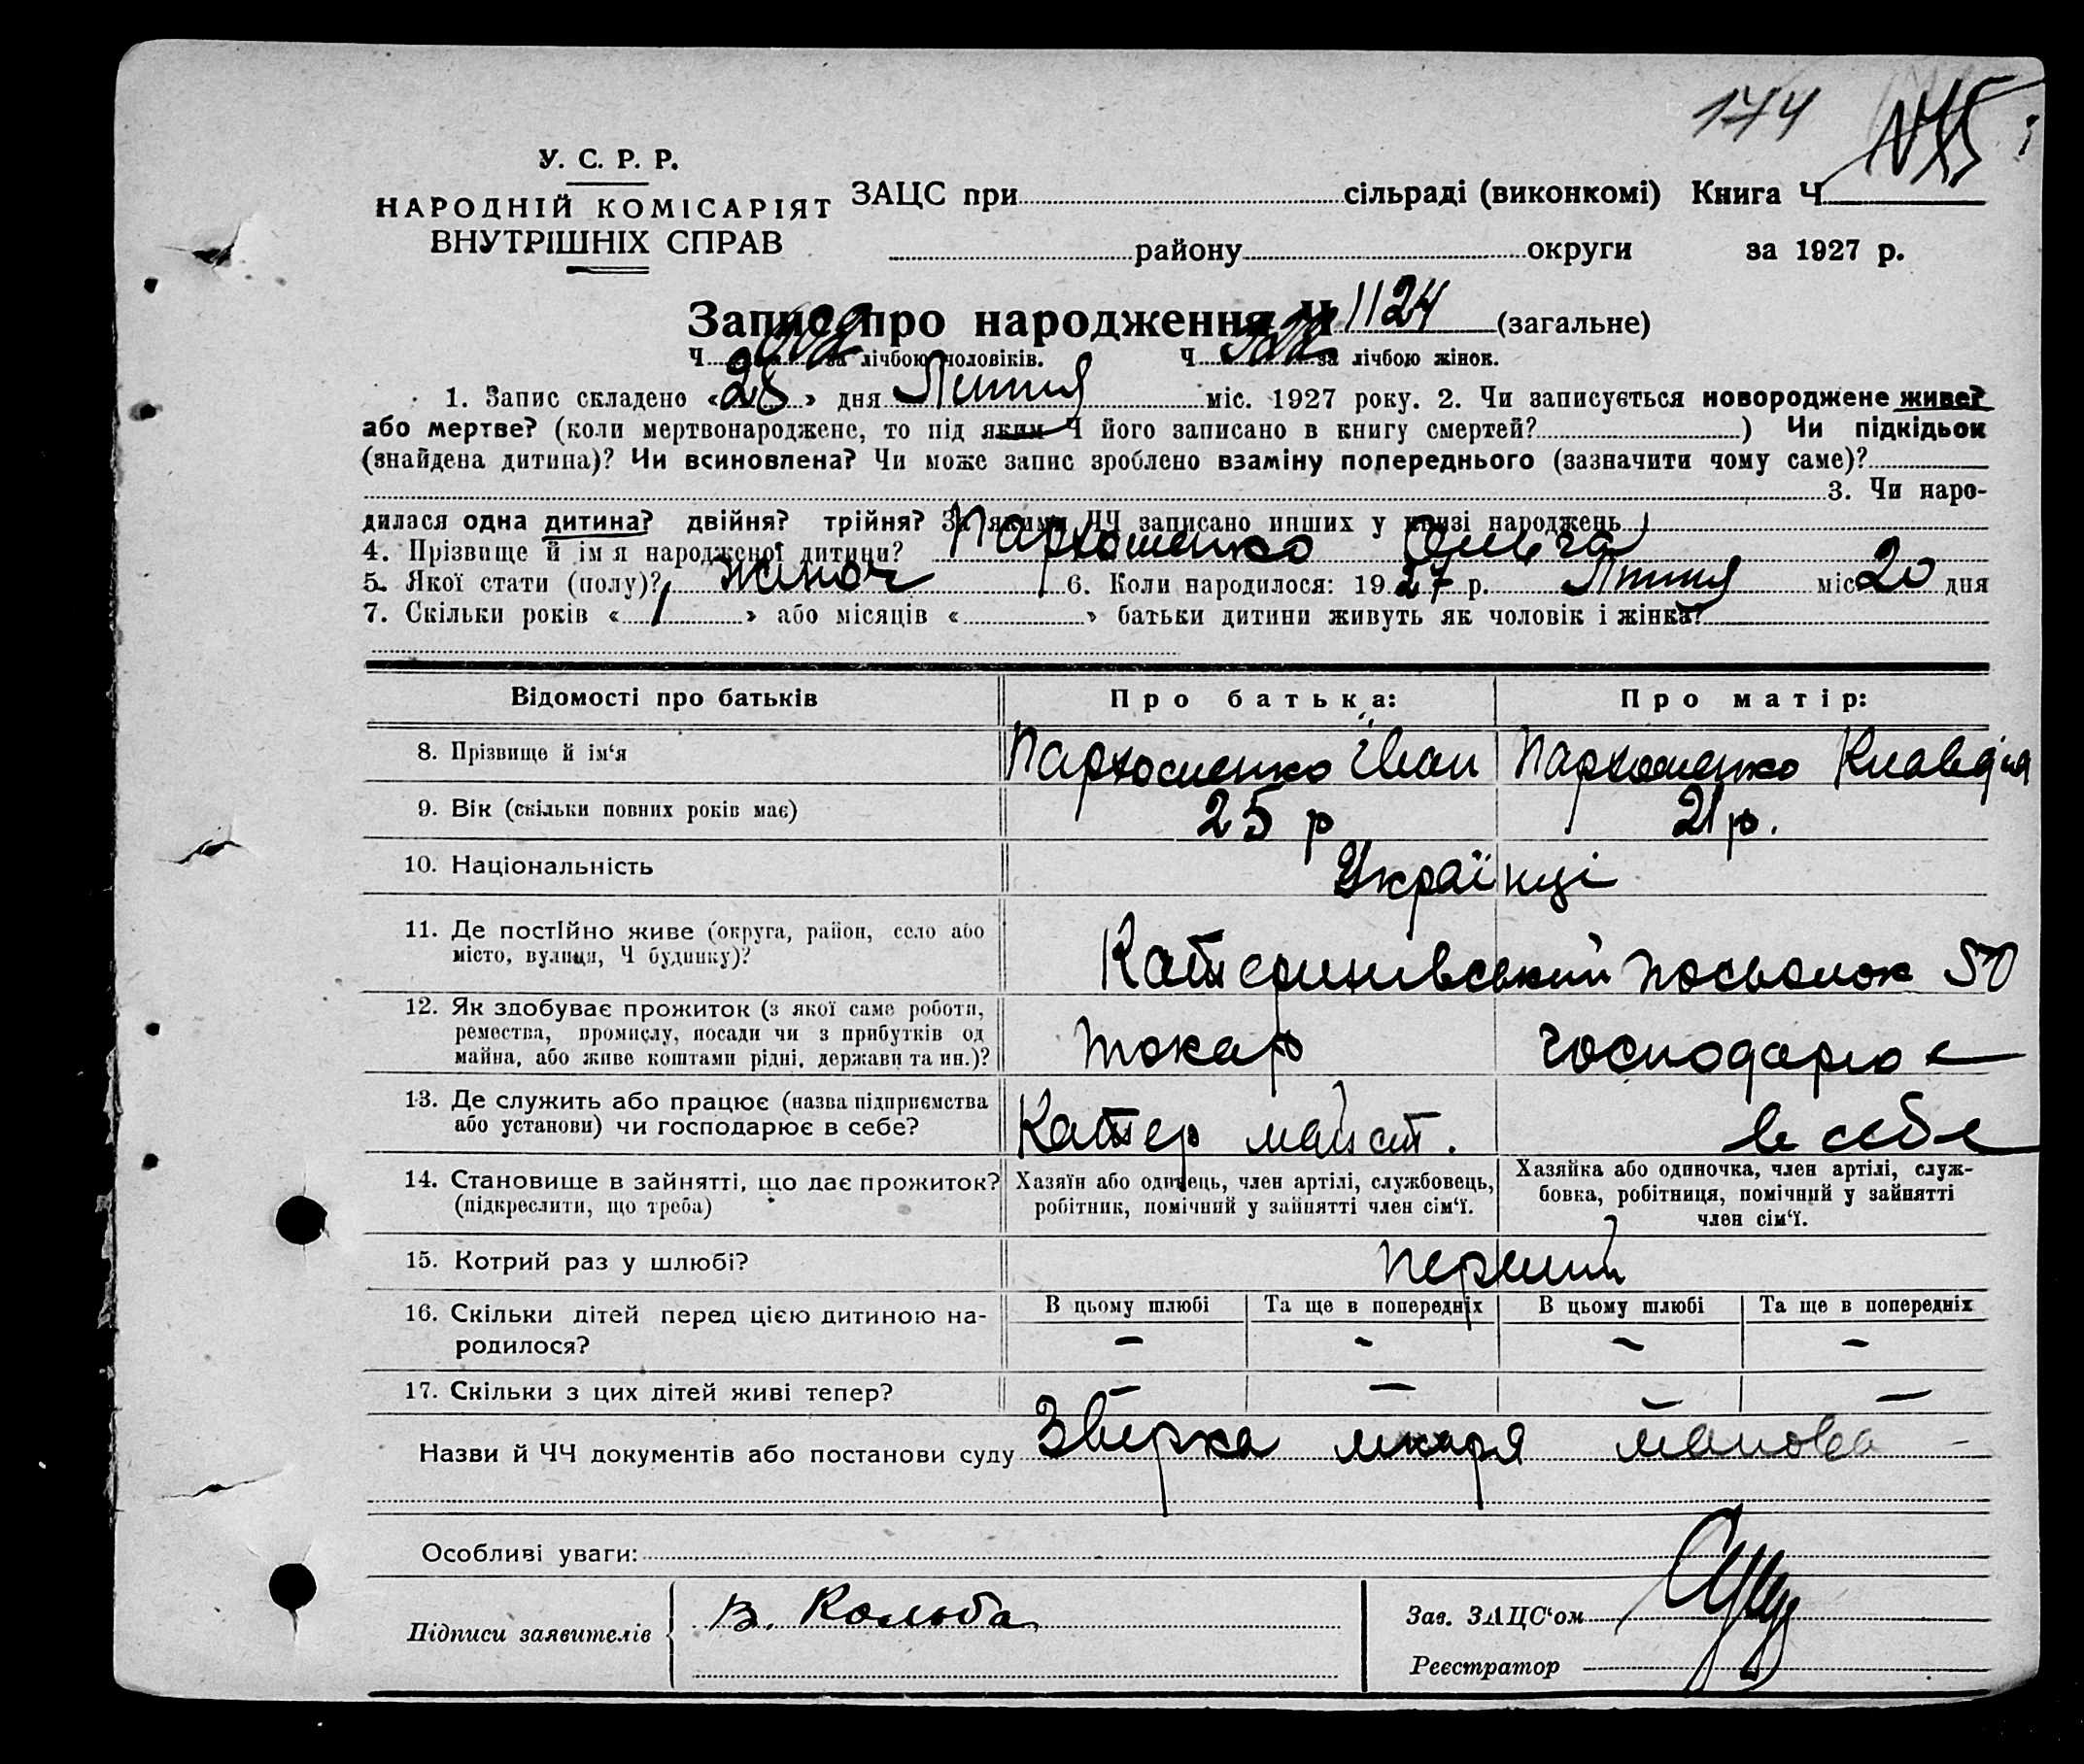 174
У. С. Р. Р.
НАРОДНІЙ КОМІСАРІЯТ
ВНУТРІШНІХ СПРАВ
ЗАЦС при сільраді (виконкомі) Книга Ч
району округи за 1927 р.
Запис про народження Ч 1124 (загальне)
Ч за лічбою чоловіків. Ч за лічбою жінок.
1. Запис складено «28» дня Липня міс. 1927 року. 2. Чи записується новороджене живе?
або мертве? (коли мертвонароджене, то під яким Ч його записано в книгу смертей?) Чи підкідьок
(знайдена дитина)? Чи всиновлена? Чи може запис зроблено взаміну попереднього (зазначити чому саме)?
3. Чи наро-
дилася одна дитина? двійня? трійня? За якими ЧЧ записано инших у книзі народжень
4. Прізвище й ім я народженої дитини? Пархоменко Ольга
5. Якої стати (полу)? жиноч 6. Коли народилося: 1927 р. Липня міс 20 дня
7. Скільки років «1» або місяців « » батьки дитини живуть як чоловік і жінка?
Відомості про батьків Про батька: Про матір:
8. Прізвище й ім‘я Пархоменко Іван Пархоменко Клавдія
9. Вік (скільки повних років має) 25 р 21 р.
10. Національність Українці
11. Де постійно живе (округа, район, село або
місто, вулиця, Ч будинку)? Катеринівський посьолок 50
12. Як здобуває прожиток (з якої саме роботи,
ремества, промислу, посади чи з прибутків од
майна, або живе коштами рідні, держави та ин.)? токар господарює
13. Де служить або працює (назва підприємства
або установи) чи господарює в себе? Катер майст. в себе
14. Становище в зайнятті, що дає прожиток?
(підкреслити, що треба)
Хазяїн або одинець, член артілі, службовець,
робітник, помічний у зайнятті член сім‘ї.
Хазяйка або одиночка, член артілі, служ-
бовка, робітниця, помічний у зайнятті
член сім‘ї.
15. Котрий раз у шлюбі? перший
16. Скільки дітей перед цією дитиною на-
родилося?
В цьому шлюбі Та ще в попередніх В цьому шлюбі Та ще в попередніх
– – – –
17. Скільки з цих дітей живі тепер? – – – –
Назви й ЧЧ документів або постанови суду лікаря
Особливі уваги:
Підписи заявителів В. Кольба
Зав. ЗАЦС‘ом
Реєстратор